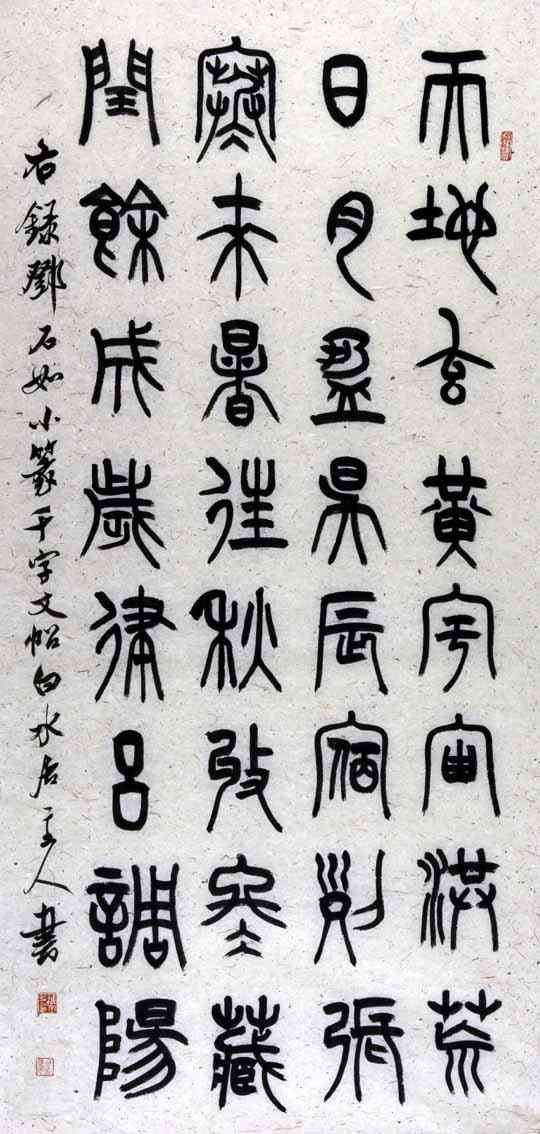 天地玄黃宇宙洪荒
日月盈昃辰宿列張
寒來暑往秋收冬藏
閏餘成歲律呂調陽
右録鄧石如小篆千字文帖白水居主人書